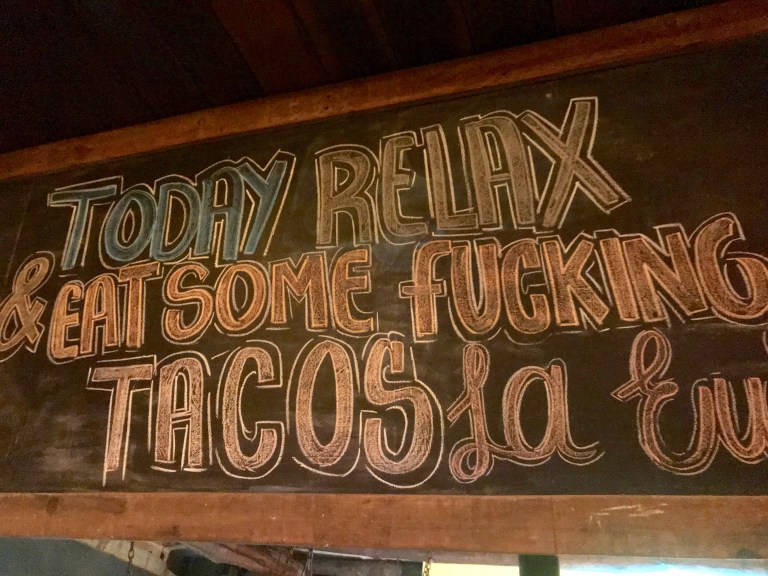 TODAY RELAX
& EAT SOME FUCKING
TACOS La